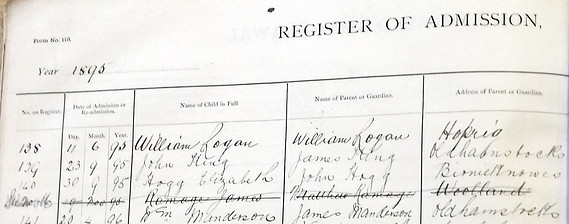 REGISTER OF ADMISSION,
Form No. 110.
Year 1895
No. on Register. Date of Admission or Re-admission. Name of Child in Full. Name of Parent or Guardian. Address of Parent or Guardian.
Day. Month. Year.
138 11 6 95 William Logan William Logan
139 23 9 95 John King James King Oldhamstocks
140 30 9 95 Hogg Elizabeth John Hogg Birnieknowes
Ramage James Matthew Ramage Woollands
141 96 Wm Manderson James Manderson Oldhamstocks